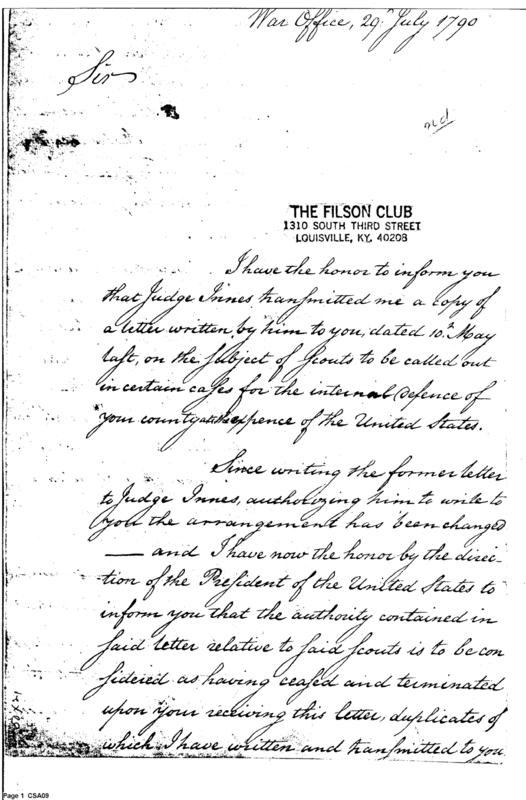 War Office, 29th July 1790
Sir
THE FILSON CLUB
1310 SOUTH THIRD STREET
LOUISVILLE, KY. 40208
I have the honor to inform you
that Judge Innes transmitted me a copy of
a letter written by him to you, dated 10th May
last, on the subject of Scouts to be called out
in certain cases for the internal Defence of
your county at the expence of the United States.
Since writing the former letter
to Judge Innes, authorizing him to write to
you the arrangement has been changed
— and I have now the honor by the direc-
tion of the President of the United States to
inform you that the authority contained in
said letter relative to said scouts is to be con
sidered as having ceased and terminated
upon your receiving this letter, duplicates of
which I have written and transmitted to you
Page 1 CSA09